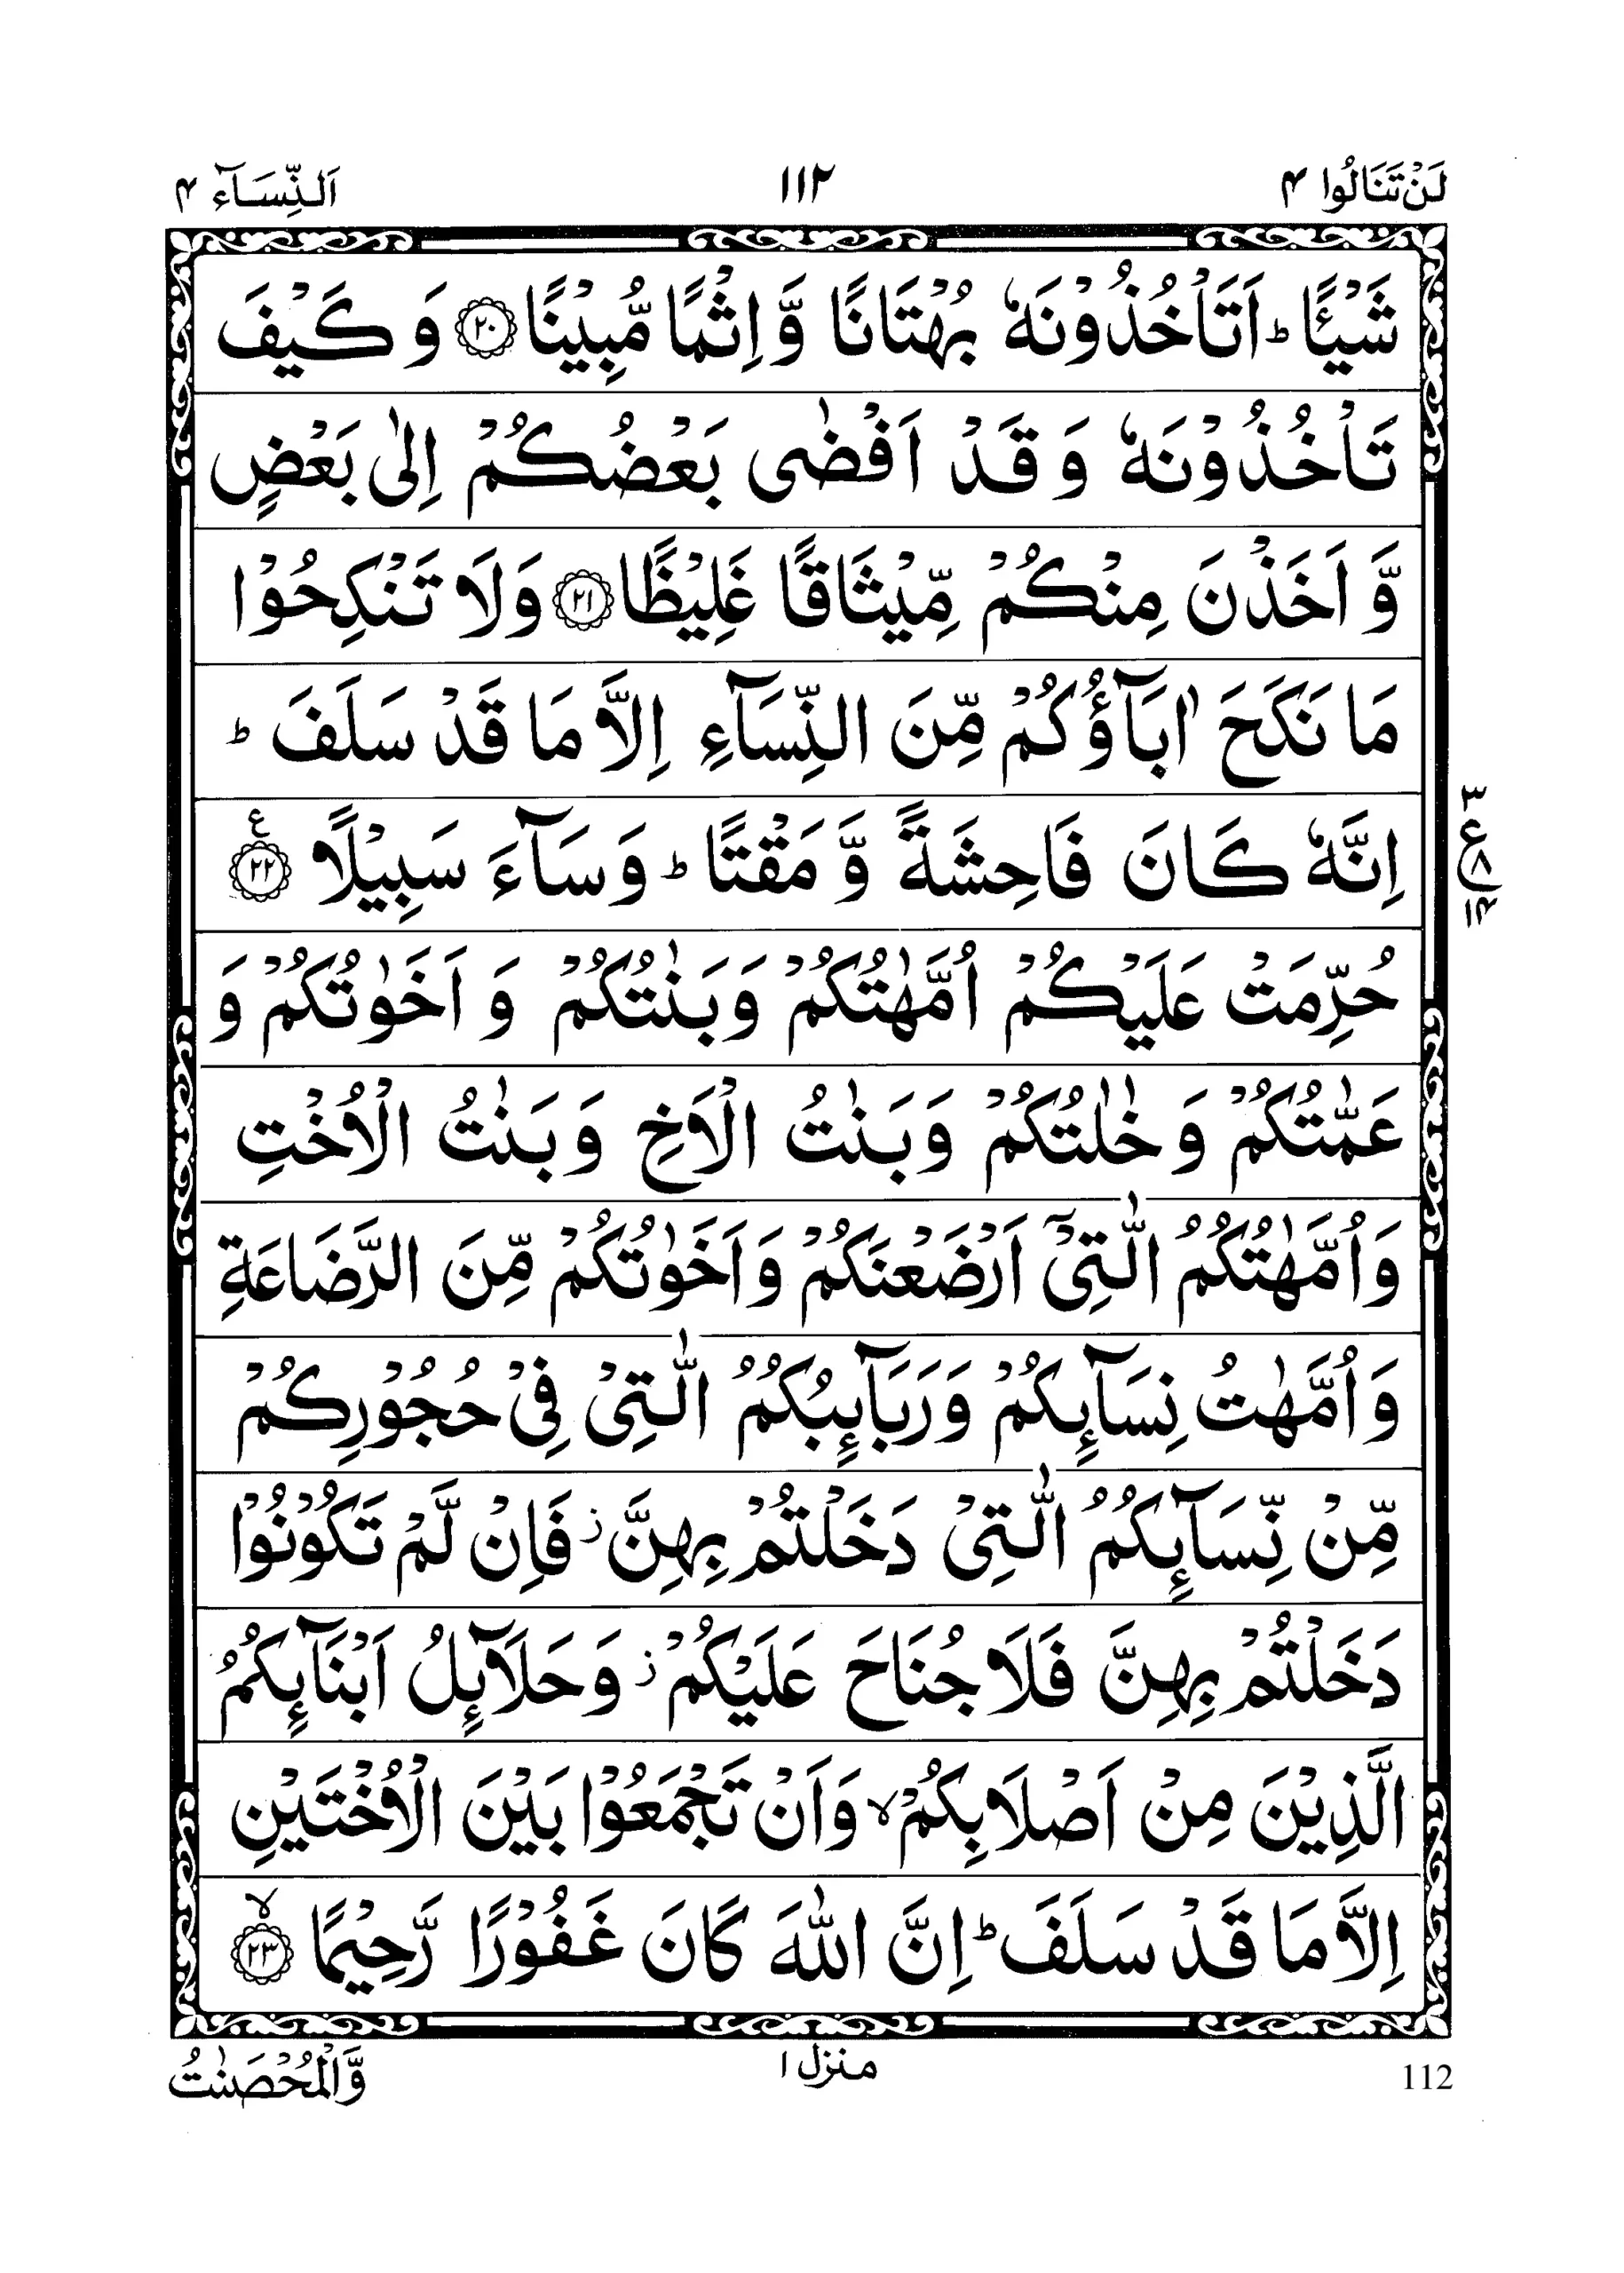 لَنْ تَنَالُوا ۴ ۱۱۲ اَلنِّسَآء ۴
شَيْـًٔا ؕ اَتَاْخُذُوْنَهٗ بُهْتَانًا وَّ اِثْمًا مُّبِيْنًا ۟۲۰ وَ كَيْفَ
تَاْخُذُوْنَهٗ وَ قَدْ اَفْضٰى بَعْضُكُمْ اِلٰى بَعْضٍ
وَّ اَخَذْنَ مِنْكُمْ مِّيْثَاقًا غَلِيْظًا ۟۲۱ وَلَا تَنْكِحُوْا
مَا نَكَحَ اٰبَآؤُكُمْ مِّنَ النِّسَآءِ اِلَّا مَا قَدْ سَلَفَ ؕ
اِنَّهٗ كَانَ فَاحِشَةً وَّ مَقْتًا ؕ وَ سَآءَ سَبِيْلًا ۟۲۲ ع
۳
ع ۸
۱۴
حُرِّمَتْ عَلَيْكُمْ اُمَّهٰتُكُمْ وَبَنٰتُكُمْ وَ اَخَوٰتُكُمْ وَ
عَمّٰتُكُمْ وَ خٰلٰتُكُمْ وَبَنٰتُ الْاَخِ وَ بَنٰتُ الْاُخْتِ
وَاُمَّهٰتُكُمُ الّٰتِيْۤ اَرْضَعْنَكُمْ وَاَخَوٰتُكُمْ مِّنَ الرَّضَاعَةِ
وَ اُمَّهٰتُ نِسَآىِٕكُمْ وَرَبَآىِٕبُكُمُ الّٰتِيْ فِيْ حُجُوْرِكُمْ
مِّنْ نِّسَآىِٕكُمُ الّٰتِيْ دَخَلْتُمْ بِهِنَّ ؗ فَاِنْ لَّمْ تَكُوْنُوْا
دَخَلْتُمْ بِهِنَّ فَلَا جُنَاحَ عَلَيْكُمْ ؗ وَحَلَآىِٕلُ اَبْنَآىِٕكُمُ
الَّذِيْنَ مِنْ اَصْلَابِكُمْ ۙ وَاَنْ تَجْمَعُوْا بَيْنَ الْاُخْتَيْنِ
اِلَّا مَا قَدْ سَلَفَ ؕ اِنَّ اللّٰهَ كَانَ غَفُوْرًا رَّحِيْمًا ۟ۙ۲۳
112 منزل ۱ وَّالْمُحْصَنٰتُ